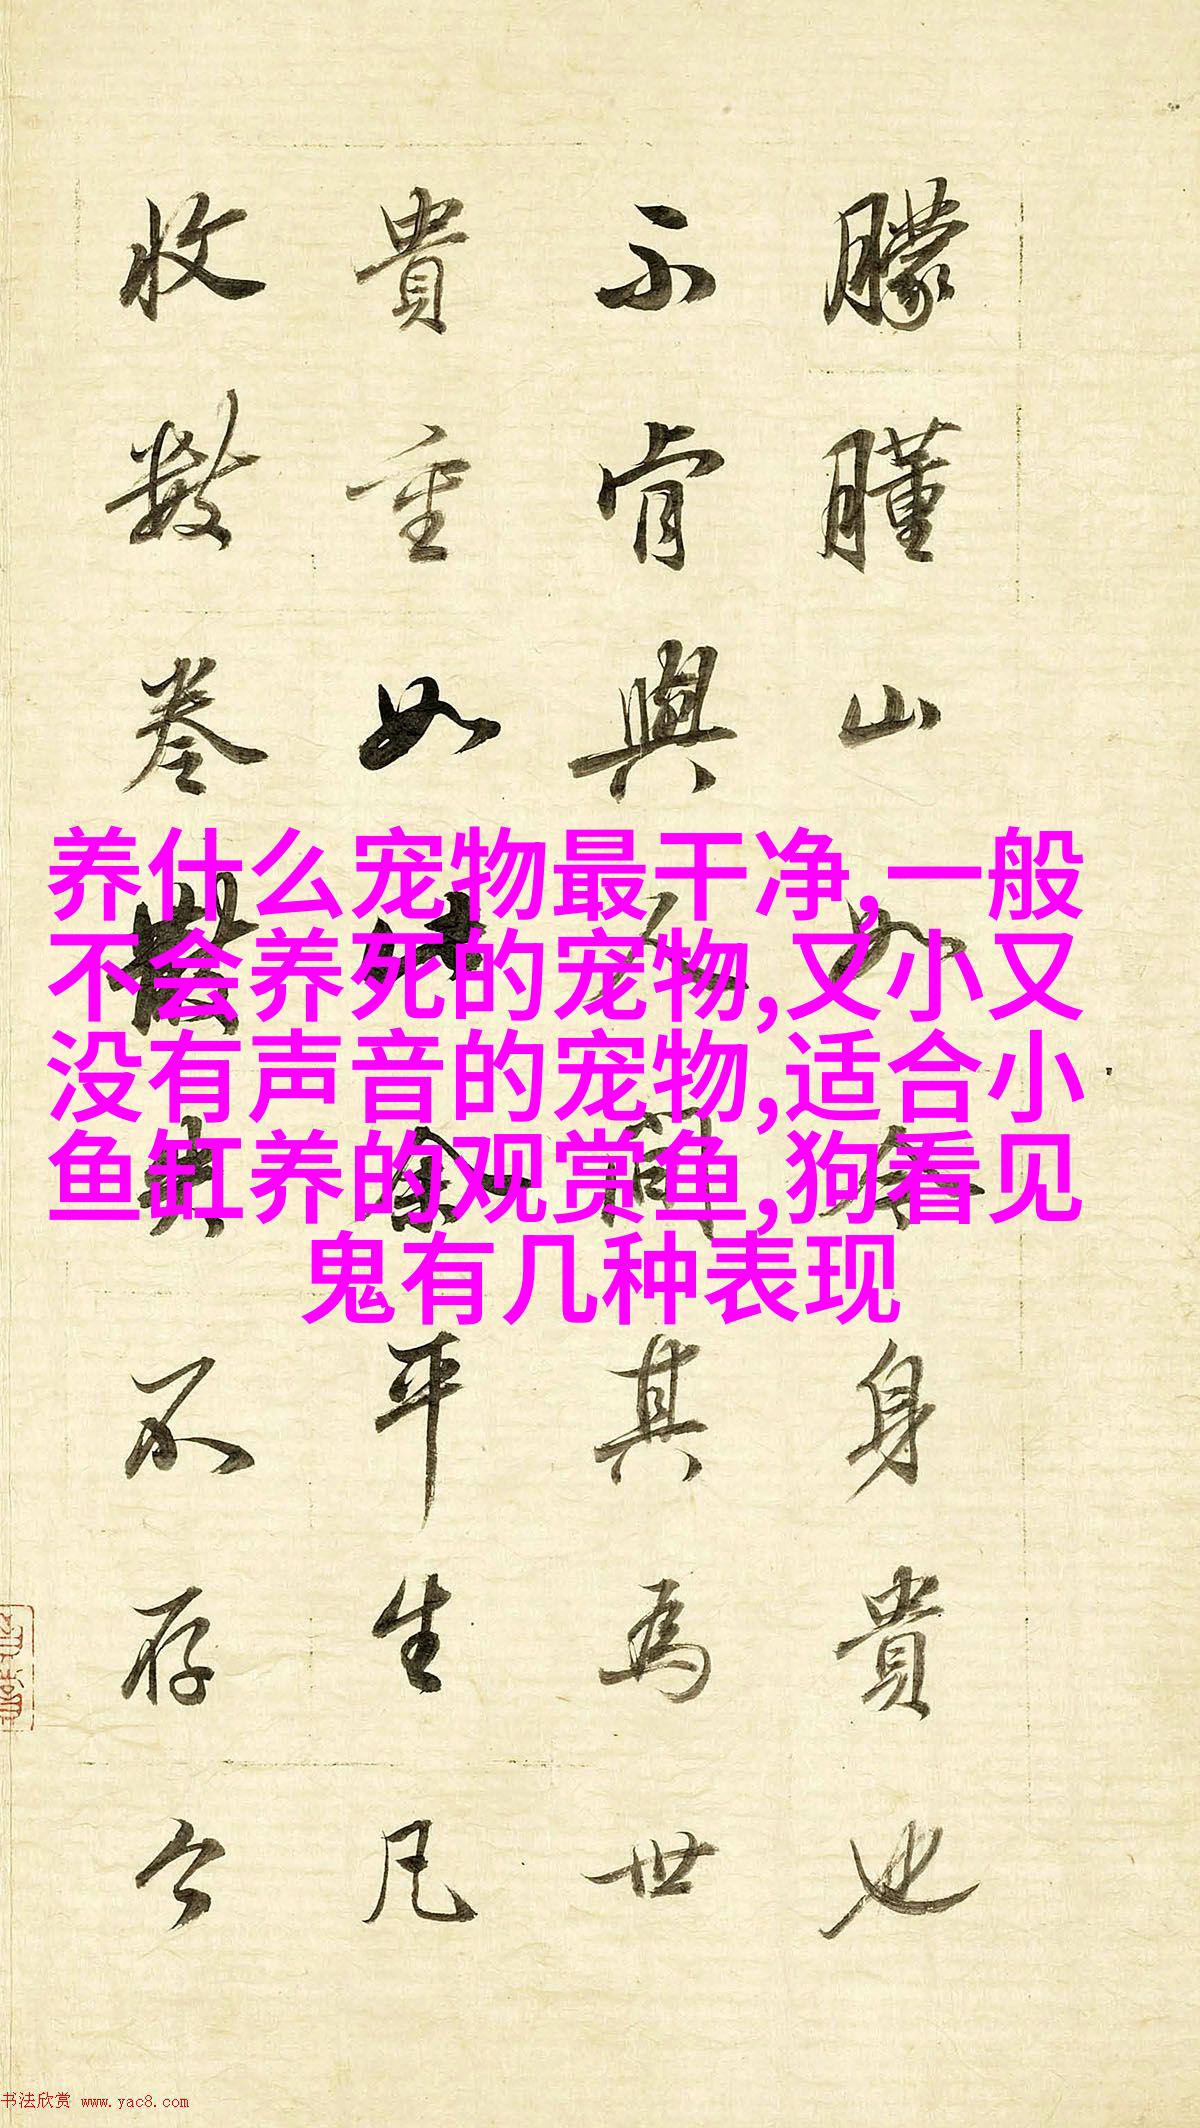 养什么宠物最干净,一般
不会养死的宠物,又小又
没有声音的宠物,适合小
鱼缸养的观赏鱼,狗看见
鬼有几种表现
朦山如身貴也
不肯與其為世
貴重如余平生凡
收數卷不存今
书法欣赏 www.yac8.com